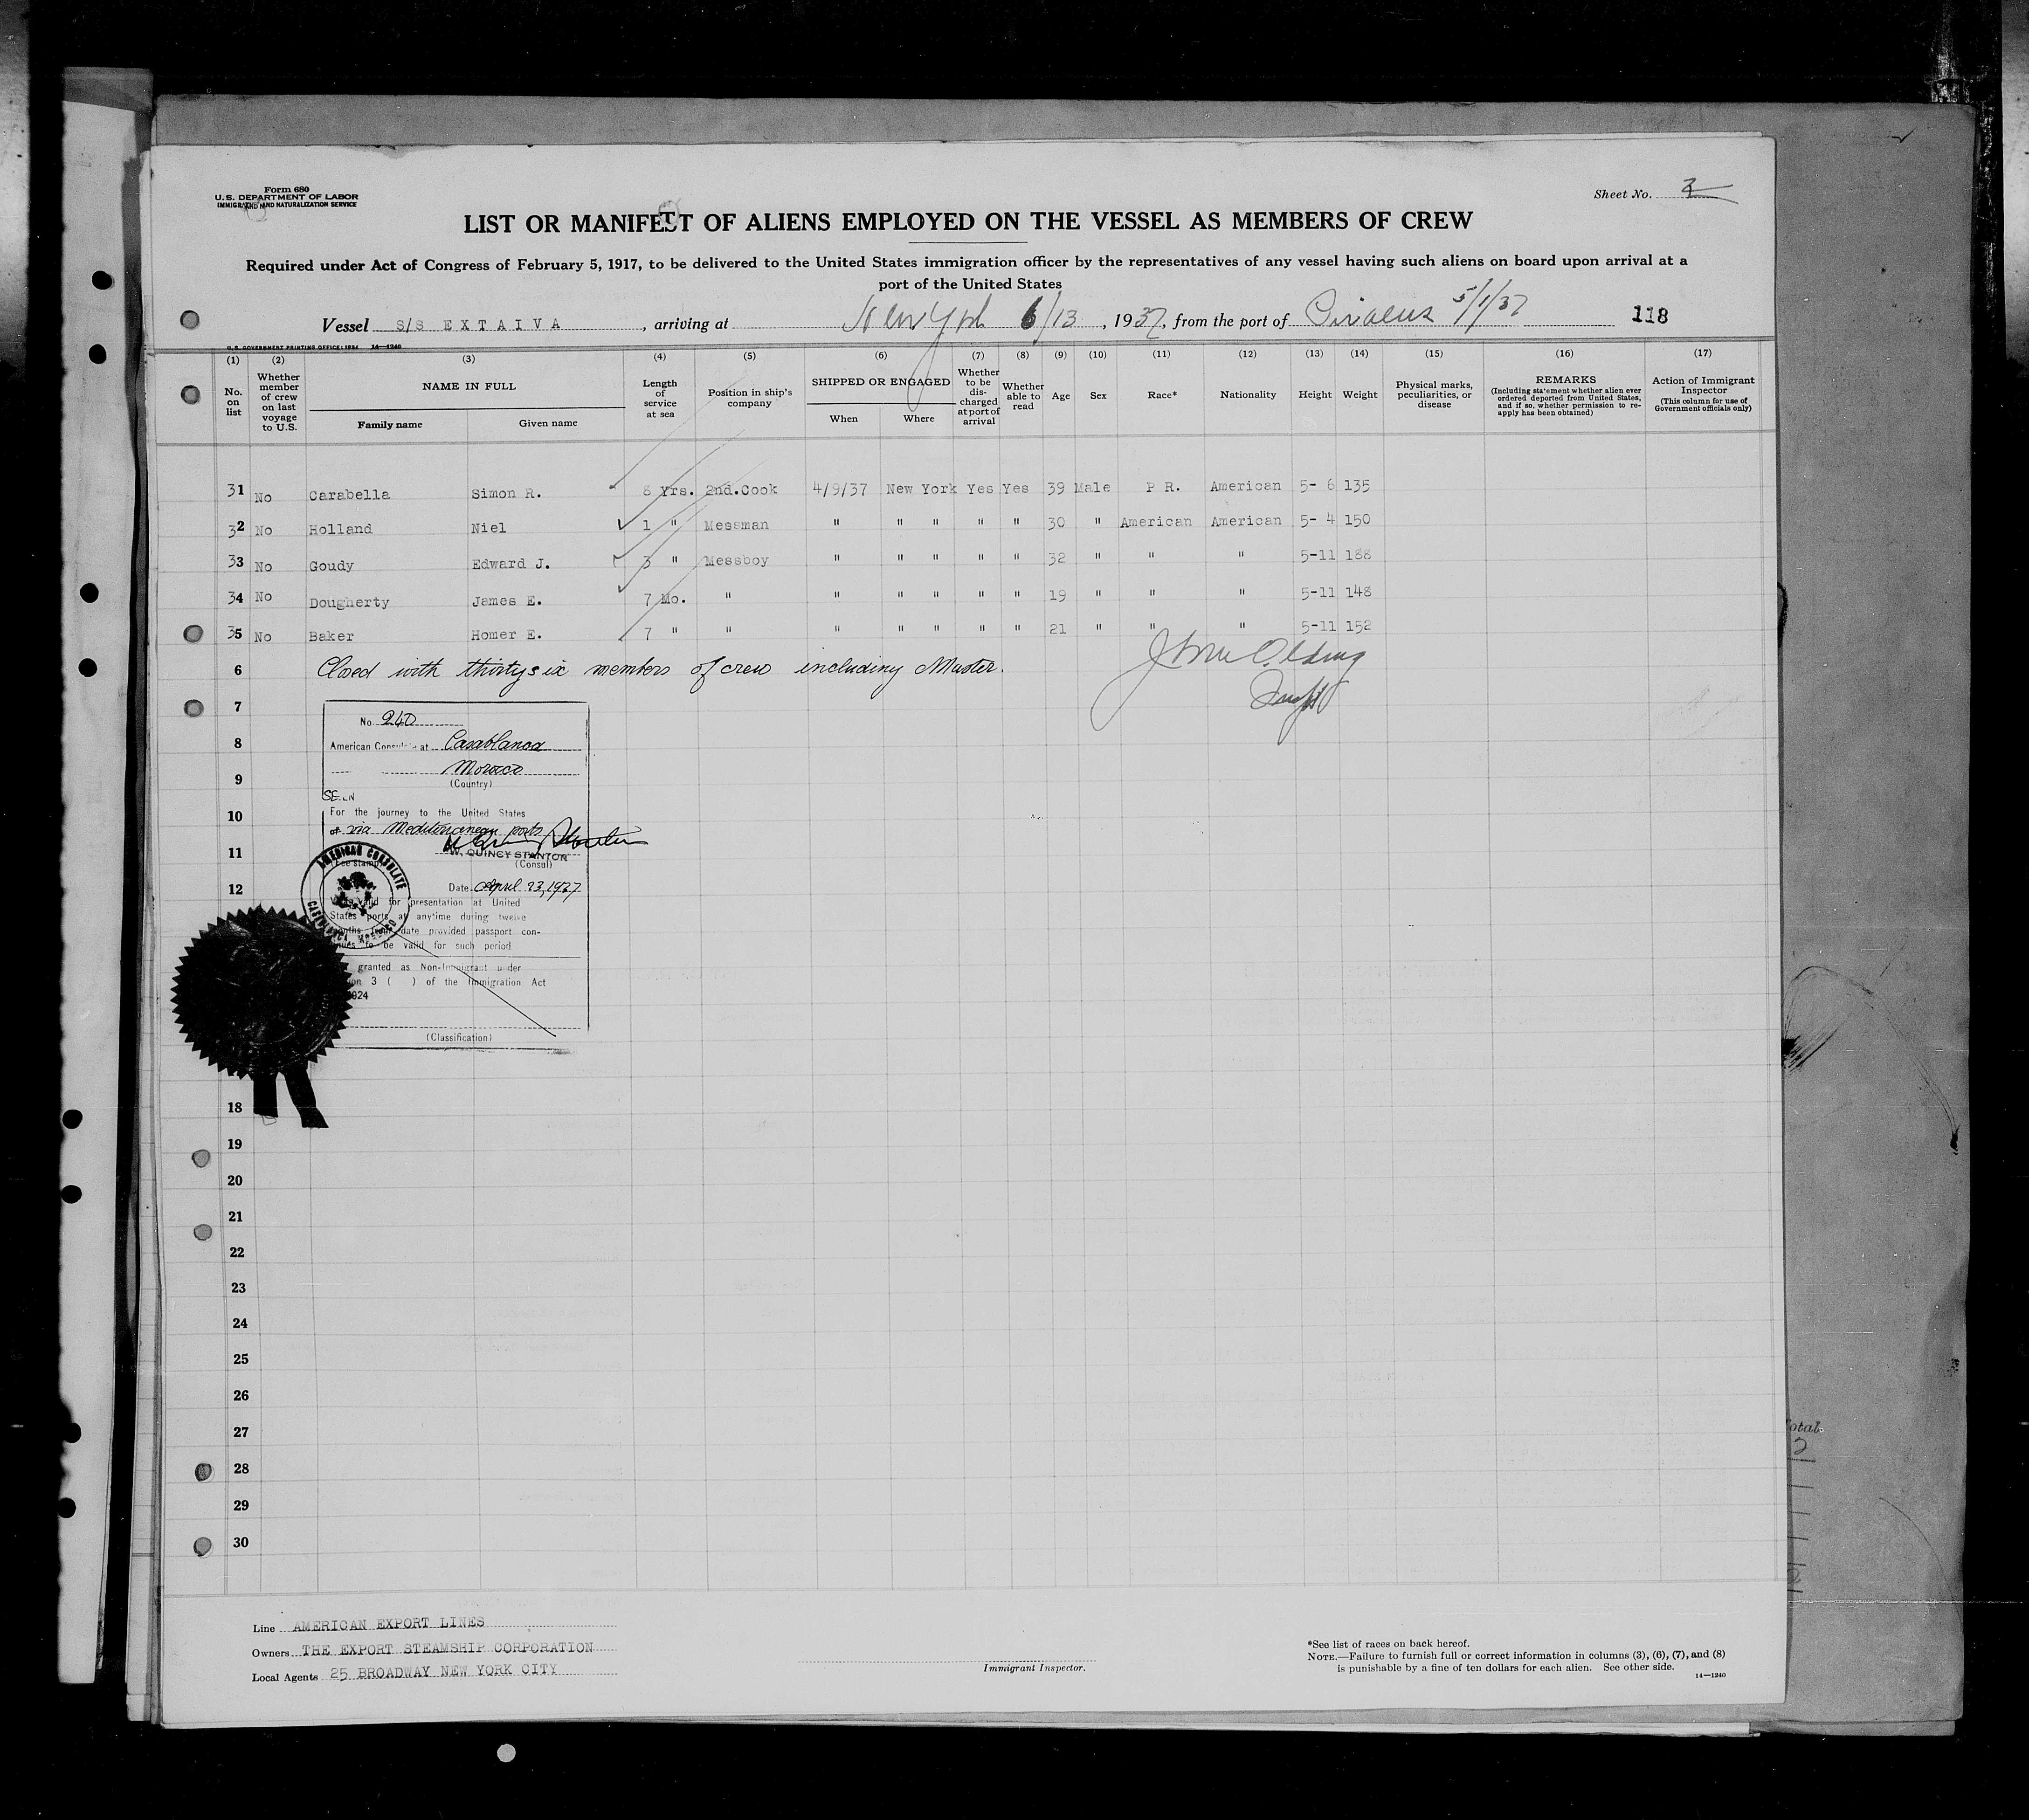 Form 680
U.S. DEPARTMENT OF LABOR
IMMIGRATION AND NATURALIZATION SERVICE
Sheet No.
LIST OR MANIFEST OF ALIENS EMPLOYED ON THE VESSEL AS MEMBERS OF CREW
Required under Act of Congress of February 5, 1917, to be delivered to the United States immigration officer by the representatives of any vessel having such aliens on board upon arrival at a
port of the United States
Vessel S/S EXTAIVA, arriving at New York 6/13, 1937, from the port of Piraeus 5/1/37 118
U.S. GOVERNMENT PRINTING OFFICE: 1934 14—1240
(1) (2) (3) (4) (5) (6) (7) (8) (9) (10) (11) (12) (13) (14) (15) (16) (17)
No. on list
Whether member of crew on last voyage to U.S.
NAME IN FULL
Family name Given name
Length of service at sea
Position in ship's company
SHIPPED OR ENGAGED
When Where
Whether to be discharged at port of arrival
Whether able to read
Age
Sex
Race*
Nationality
Height
Weight
Physical marks, peculiarities, or disease
REMARKS
(Including statement whether alien ever ordered deported from United States, and if so, whether permission to reapply has been obtained)
Action of Immigrant Inspector
(This column for use of Government officials only)
31 No Carabella Simon R. 8 Yrs. 2nd.Cook 4/9/37 New York Yes Yes 39 Male P R. American 5- 6 135
32 No Holland Niel 1 " Messman " " " " " 30 " American American 5- 4 150
33 No Goudy Edward J. 3 " Messboy " " " " " 32 " " " 5-11 188
34 No Dougherty James E. 7 Mo. " " " " " " 19 " " " 5-11 148
35 No Baker Homer E. 7 " " " " " " " 21 " " " 5-11 152
6 Closed with thirtysix members of crew including Master.
7
No. 240
8 American Consulate at Casablanca
Morocco
9 (Country)
SEEN
10 For the journey to the United States
via Mediterranean ports
11 W. QUINCY STANTON
(Consul)
AMERICAN CONSULATE
CASABLANCA, MOROCCO
12 Date April 23, 1937
valid for presentation at United
States ports at anytime during twelve
months from date provided passport con-
tinues to be valid for such period
granted as Non-Immigrant under
on 3 ( ) of the Immigration Act
1924
(Classification)
18
19
20
21
22
23
24
25
26
27
28
29
30
Line AMERICAN EXPORT LINES
Owners THE EXPORT STEAMSHIP CORPORATION
Local Agents 25 BROADWAY NEW YORK CITY
Immigrant Inspector.
*See list of races on back hereof.
NOTE.—Failure to furnish full or correct information in columns (3), (6), (7), and (8)
is punishable by a fine of ten dollars for each alien. See other side.
14—1240
otal